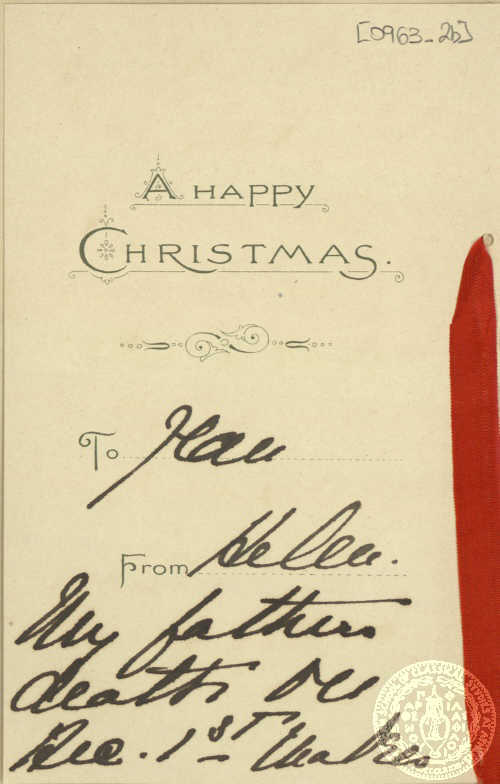 [0963_2b]
A HAPPY
CHRISTMAS.
To Jean
From Helen.
My fathers
death on
Dec. 1st makes